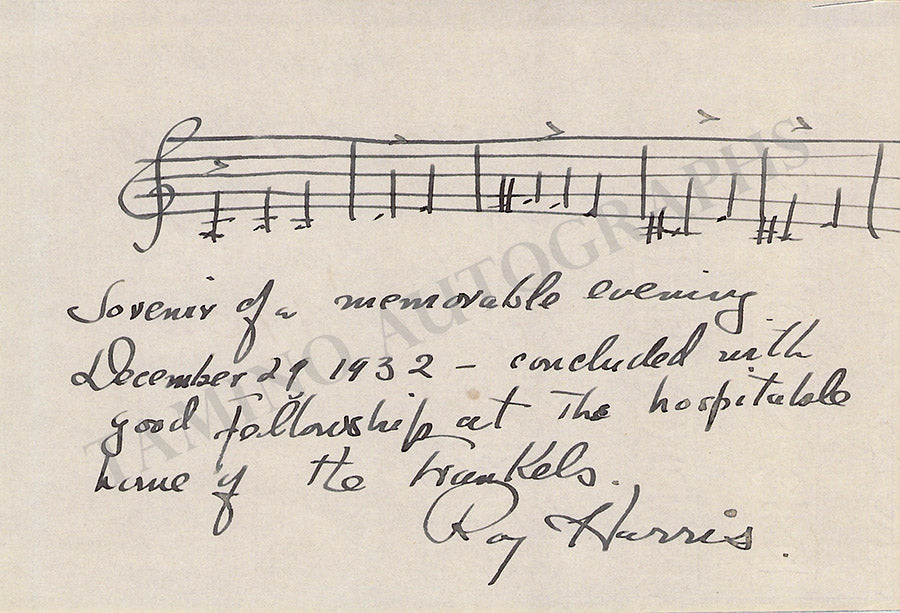 Sovenir of a memorable evening
December 29 1932 – concluded with
good fellowship at the hospitable
home of the Frankels.
Roy Harris.
TAMINO AUTOGRAPHS